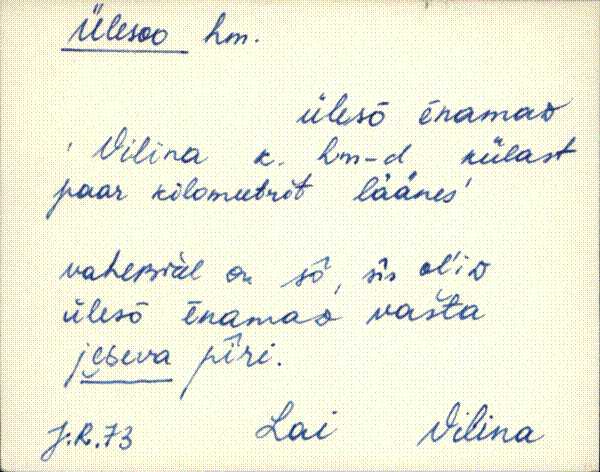 Ülesoo hm.
ülesō ēnamaɒ
Vilina k. hm-d külast
paar kilomeetrit läänes
vahepiäl on sô, sîs ol'iɒ
ülesō ēnamaɒ vašta
jeseva pîri.
J.R.73 Lai Vilina